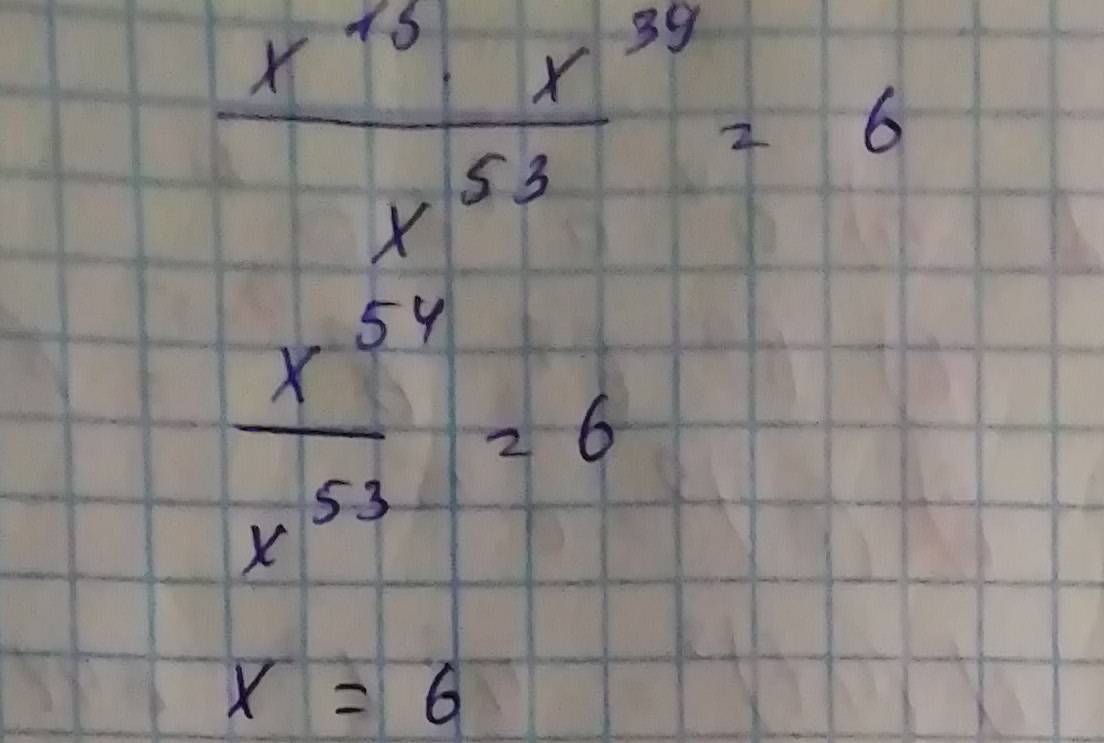 x^15 · x^39 / x^53 = 6
x^54 / x^53 = 6
x = 6